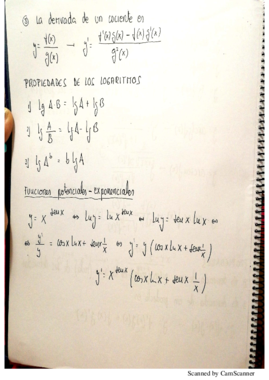 ③ La derivada de un cociente es
y = f(x)/g(x) → y' = (f'(x)g(x) - f(x)g'(x))/g²(x)
PROPIEDADES DE LOS LOGARITMOS
1) lg A·B = lg A + lg B
2) lg A/B = lg A - lg B
3) lg Aᵇ = b lg A
Funciones potenciales-exponenciales
y = x^(sen x) ⇔ ln y = ln x^(sen x) ⇔ ln y = sen x ln x ⇔
⇔ y'/y = cos x ln x + sen x 1/x ⇔ y' = y (cos x ln x + sen x 1/x)
y' = x^(sen x) (cos x ln x + sen x 1/x)
Scanned by CamScanner